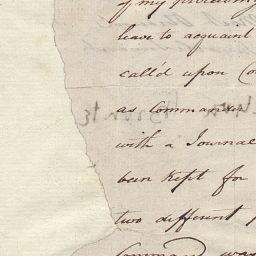 of my proceedings
leave to acquaint
call'd upon (
as Comman
with a Journal
been Kept for
two different
Command was